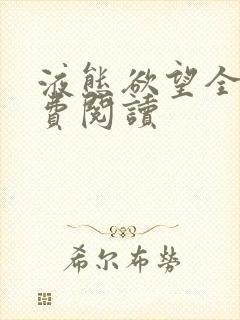 液態欲望全
費閱讀
希尔布勞